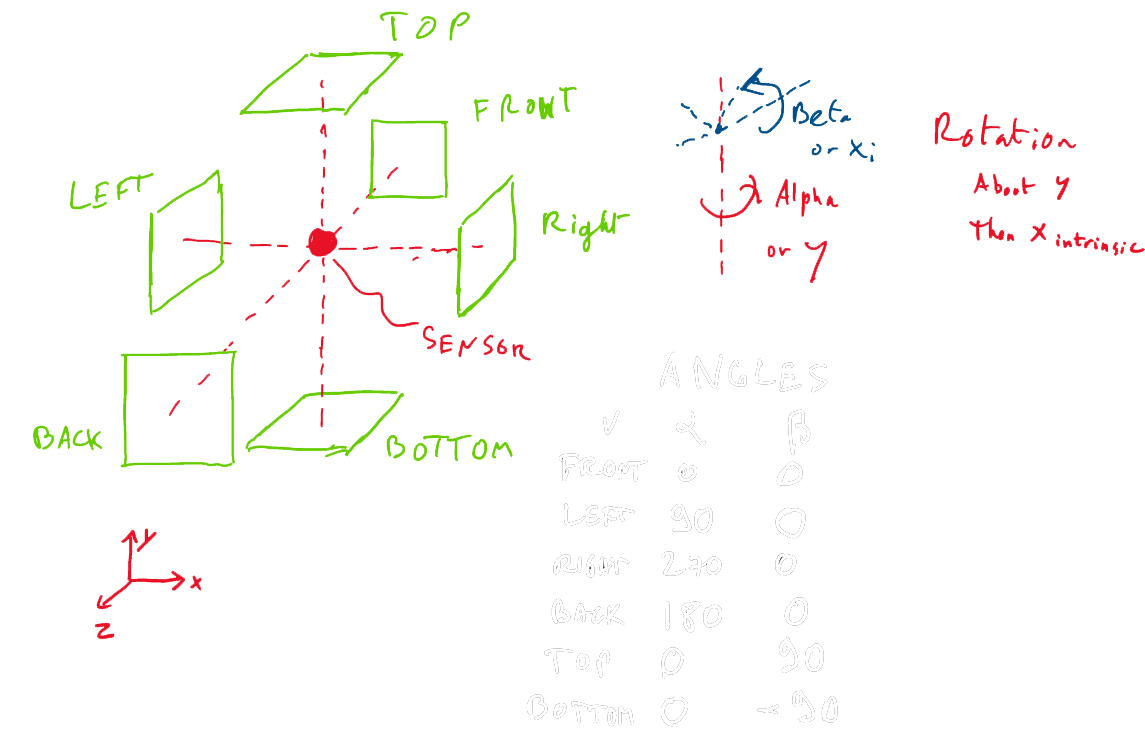 TOP
FRONT
LEFT
Right
SENSOR
BACK
BOTTOM
y
x
z
Beta
or Xi
Alpha
or Y
Rotation
About Y
Then X intrinsic
ANGLES
V α β
FRONT 0 0
LEFT 90 0
RIGHT 270 0
BACK 180 0
TOP 0 90
BOTTOM 0 -90